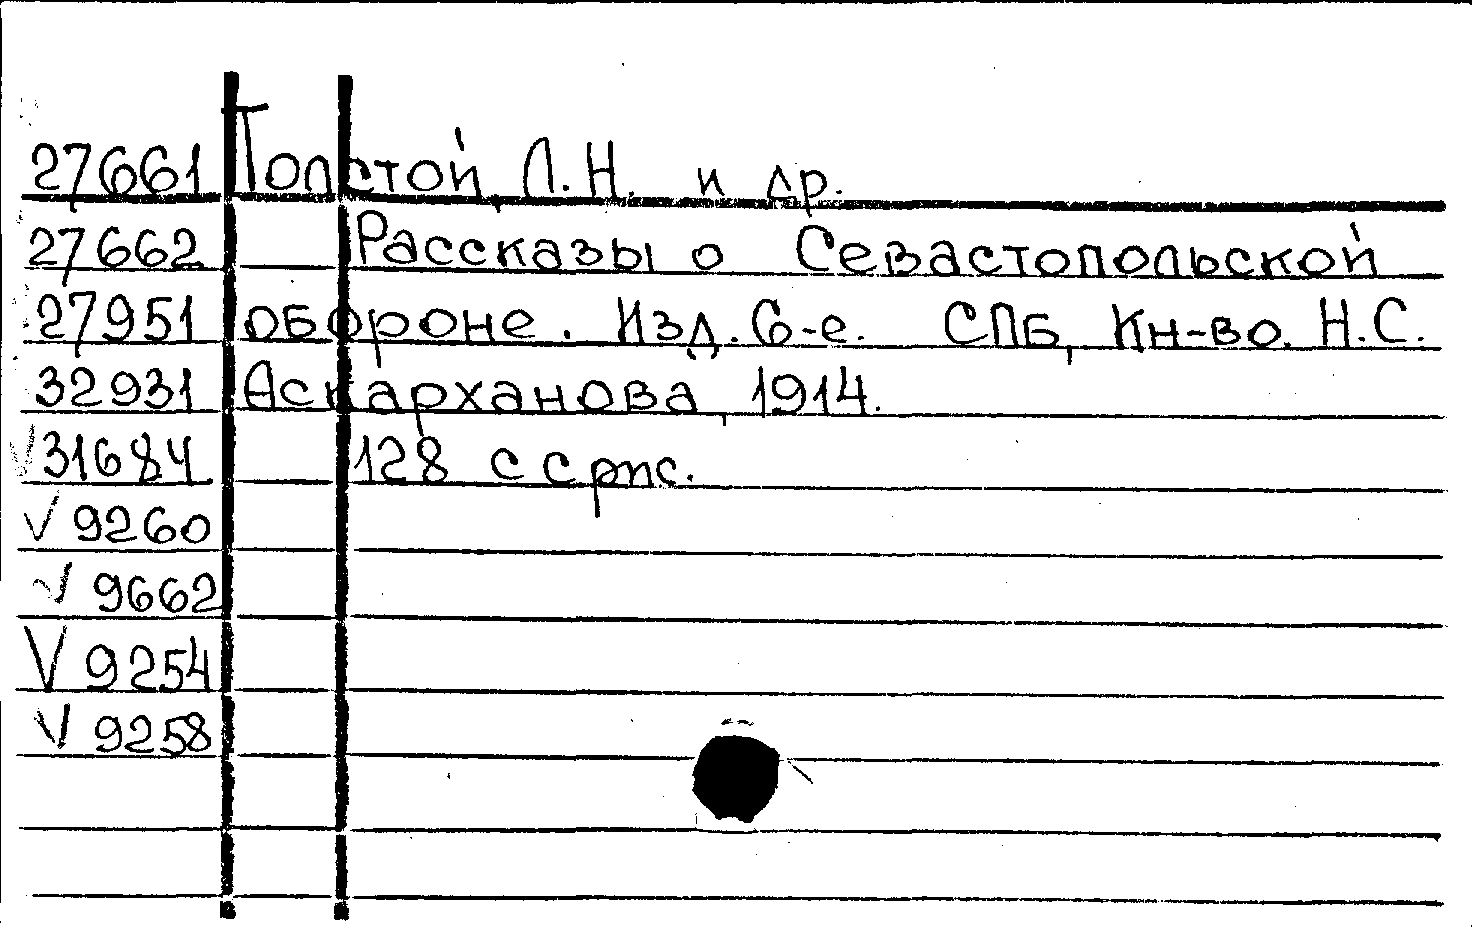 27661 Толстой, Л.Н. и др.
27662 Рассказы о Севастопольской
27951 обороне. Изд. 6-е. СПБ, Кн-во. Н.С.
32931 Аскарханова, 1914.
V 31684 128 с срис.
V 9260
V 9662
V 9254
V 9258